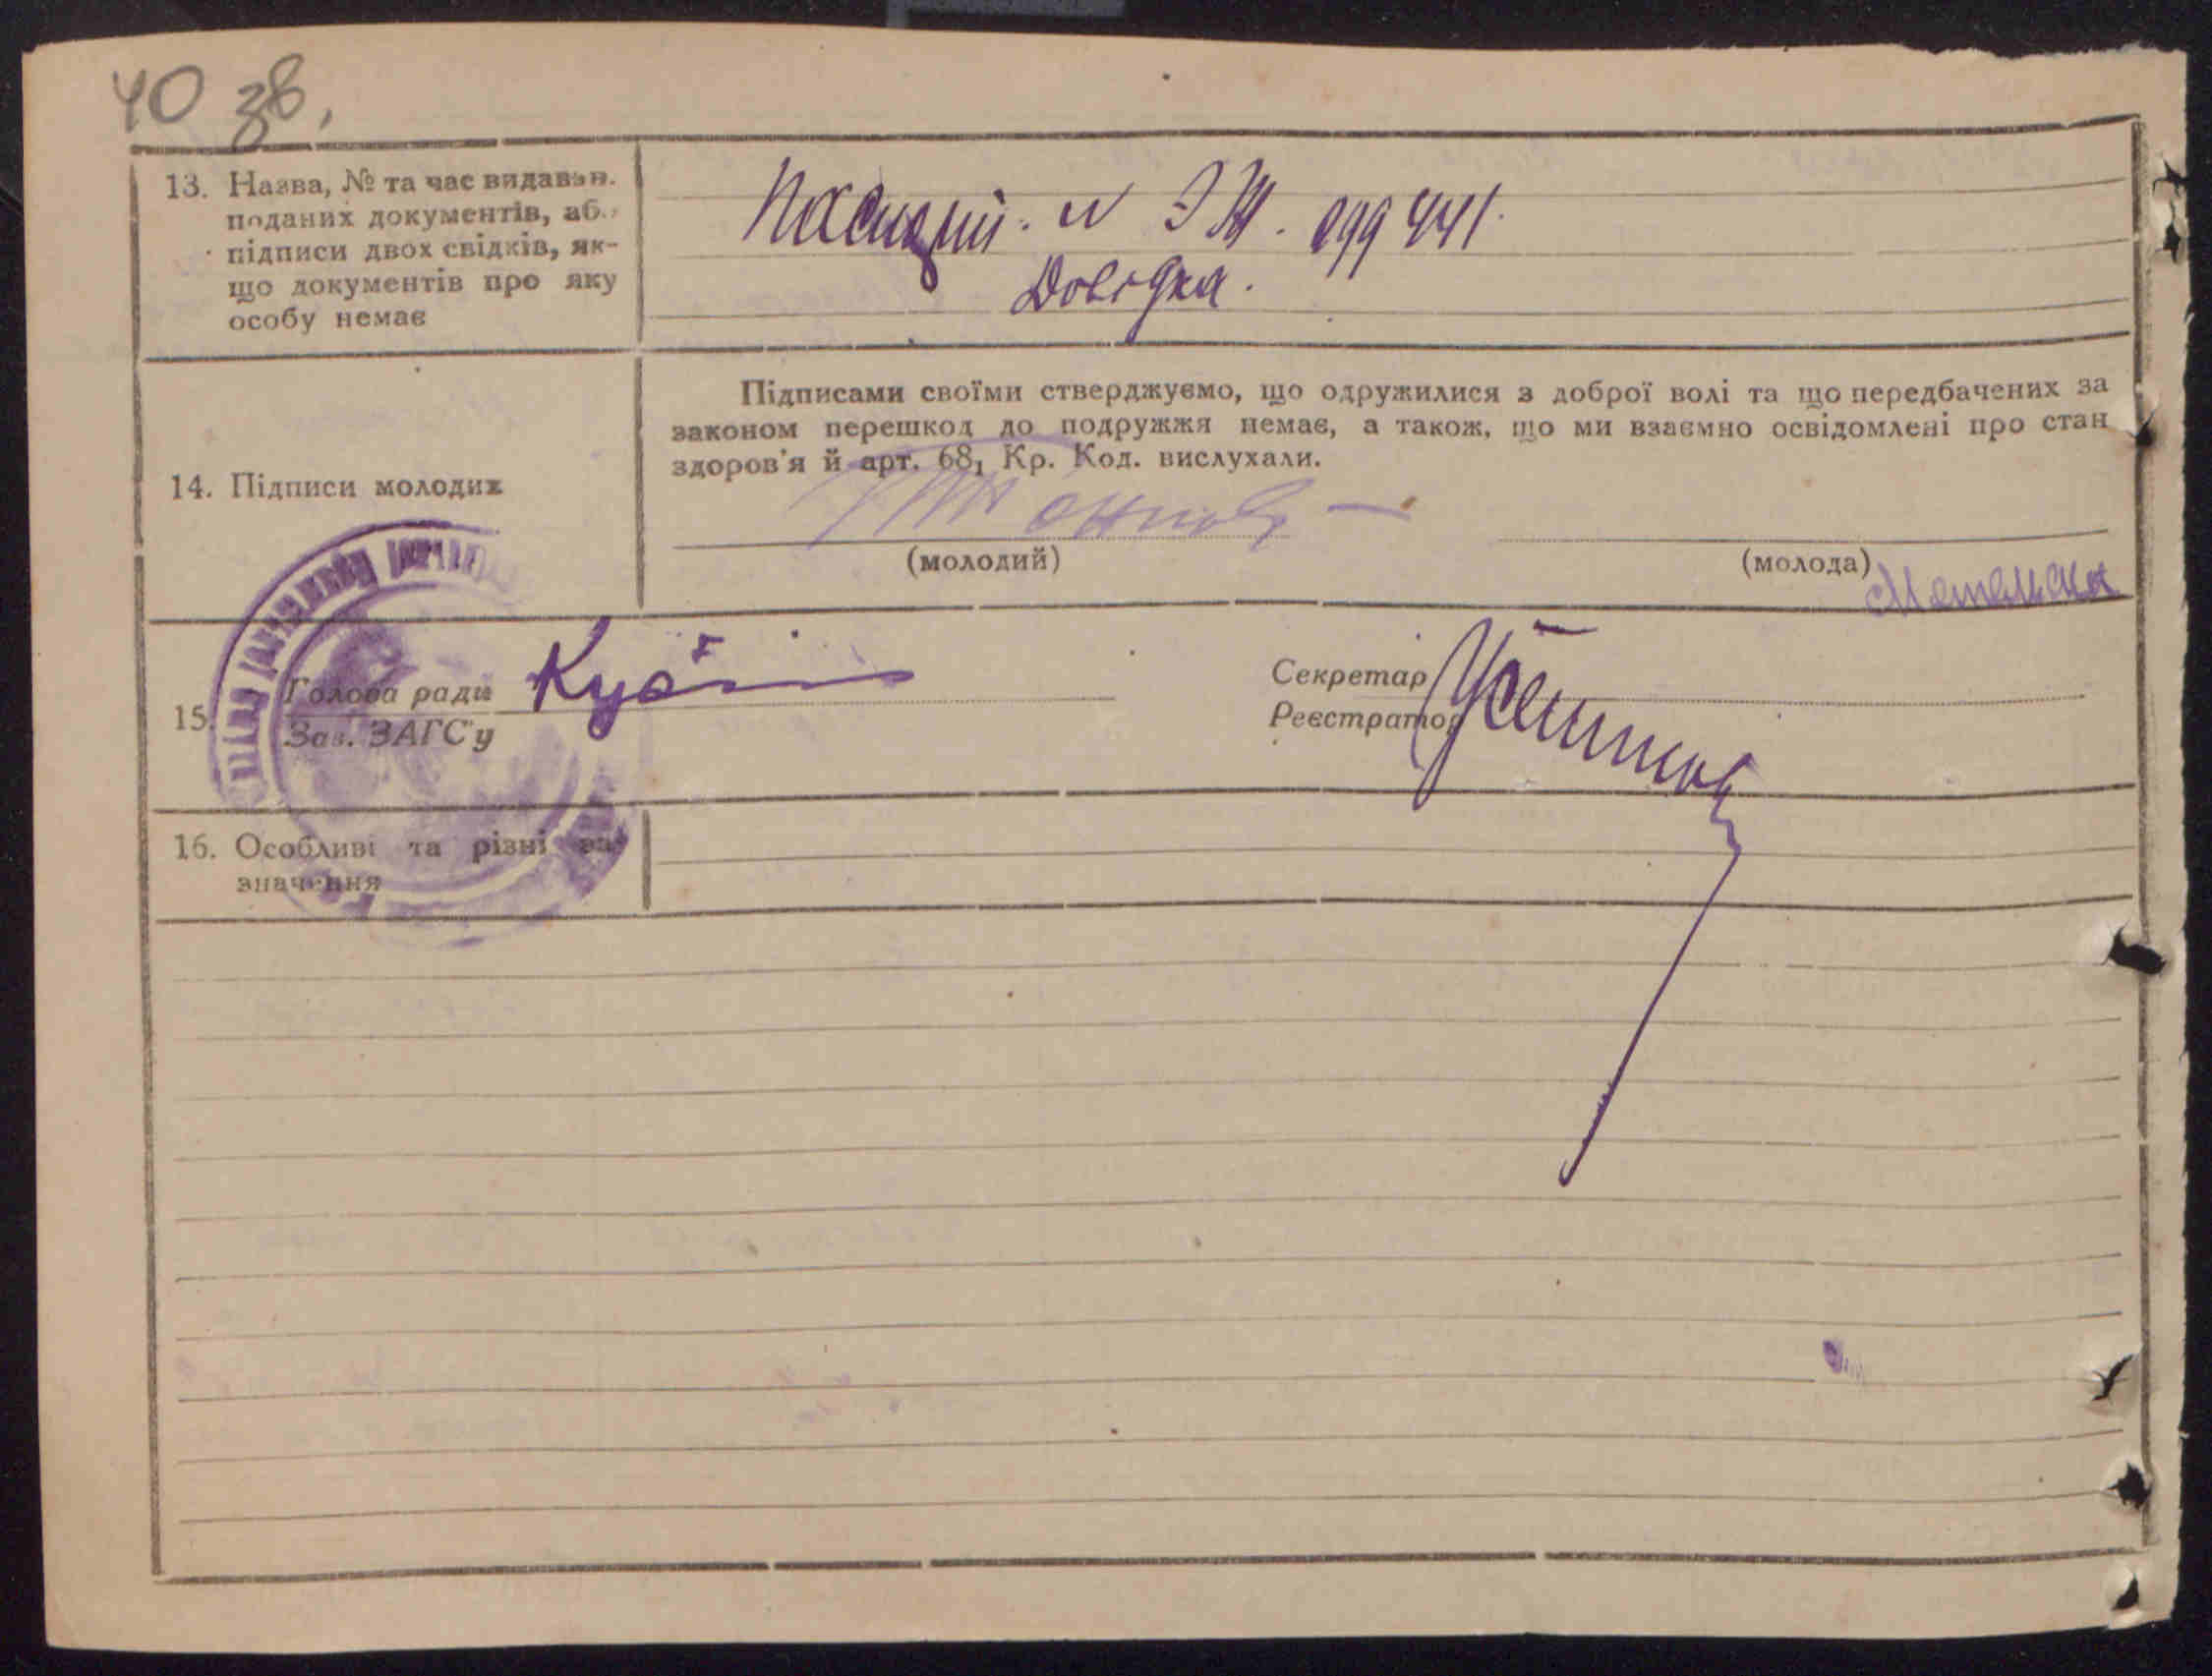 40 зв.
13. Назва, № та час видаван.
поданих документів, або
підписи двох свідків, як-
що документів про яку
особу немає
ЭЖ. 099441.
Довідка.
Підписами своїми стверджуємо, що одружилися з доброї волі та що передбачених за
законом перешкод до подружжя немає, а також, що ми взаємно освідомлені про стан
здоров'я й арт. 68₁ Кр. Код. вислухали.
14. Підписи молодих
(молодий)
(молода)
15. Голова ради
Зав. ЗАГС'у
Секретар
Реєстратор
16. Особливі та різні за-
значення